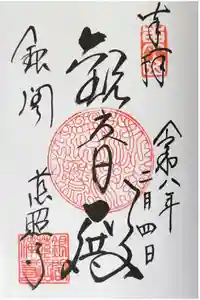 奉拝
令和八年
二月四日
観音殿
銀閣
慈照寺